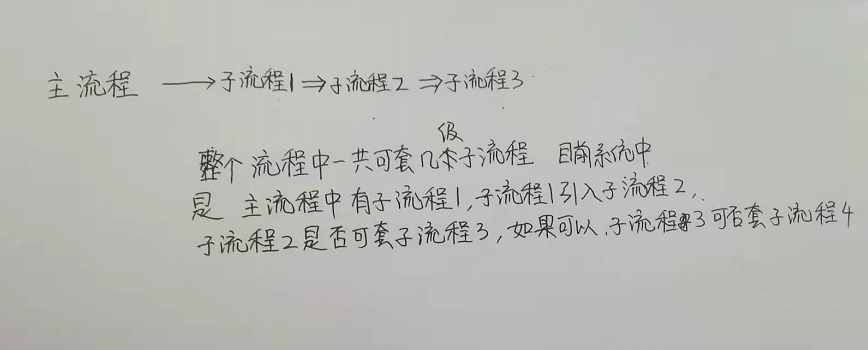 主流程 → 子流程1 ⇒ 子流程2 ⇒ 子流程3
整个流程中一共可套几级子流程 目前系统中
是 主流程中有子流程1,子流程1引入子流程2,
子流程2是否可套子流程3,如果可以,子流程3可否套子流程4